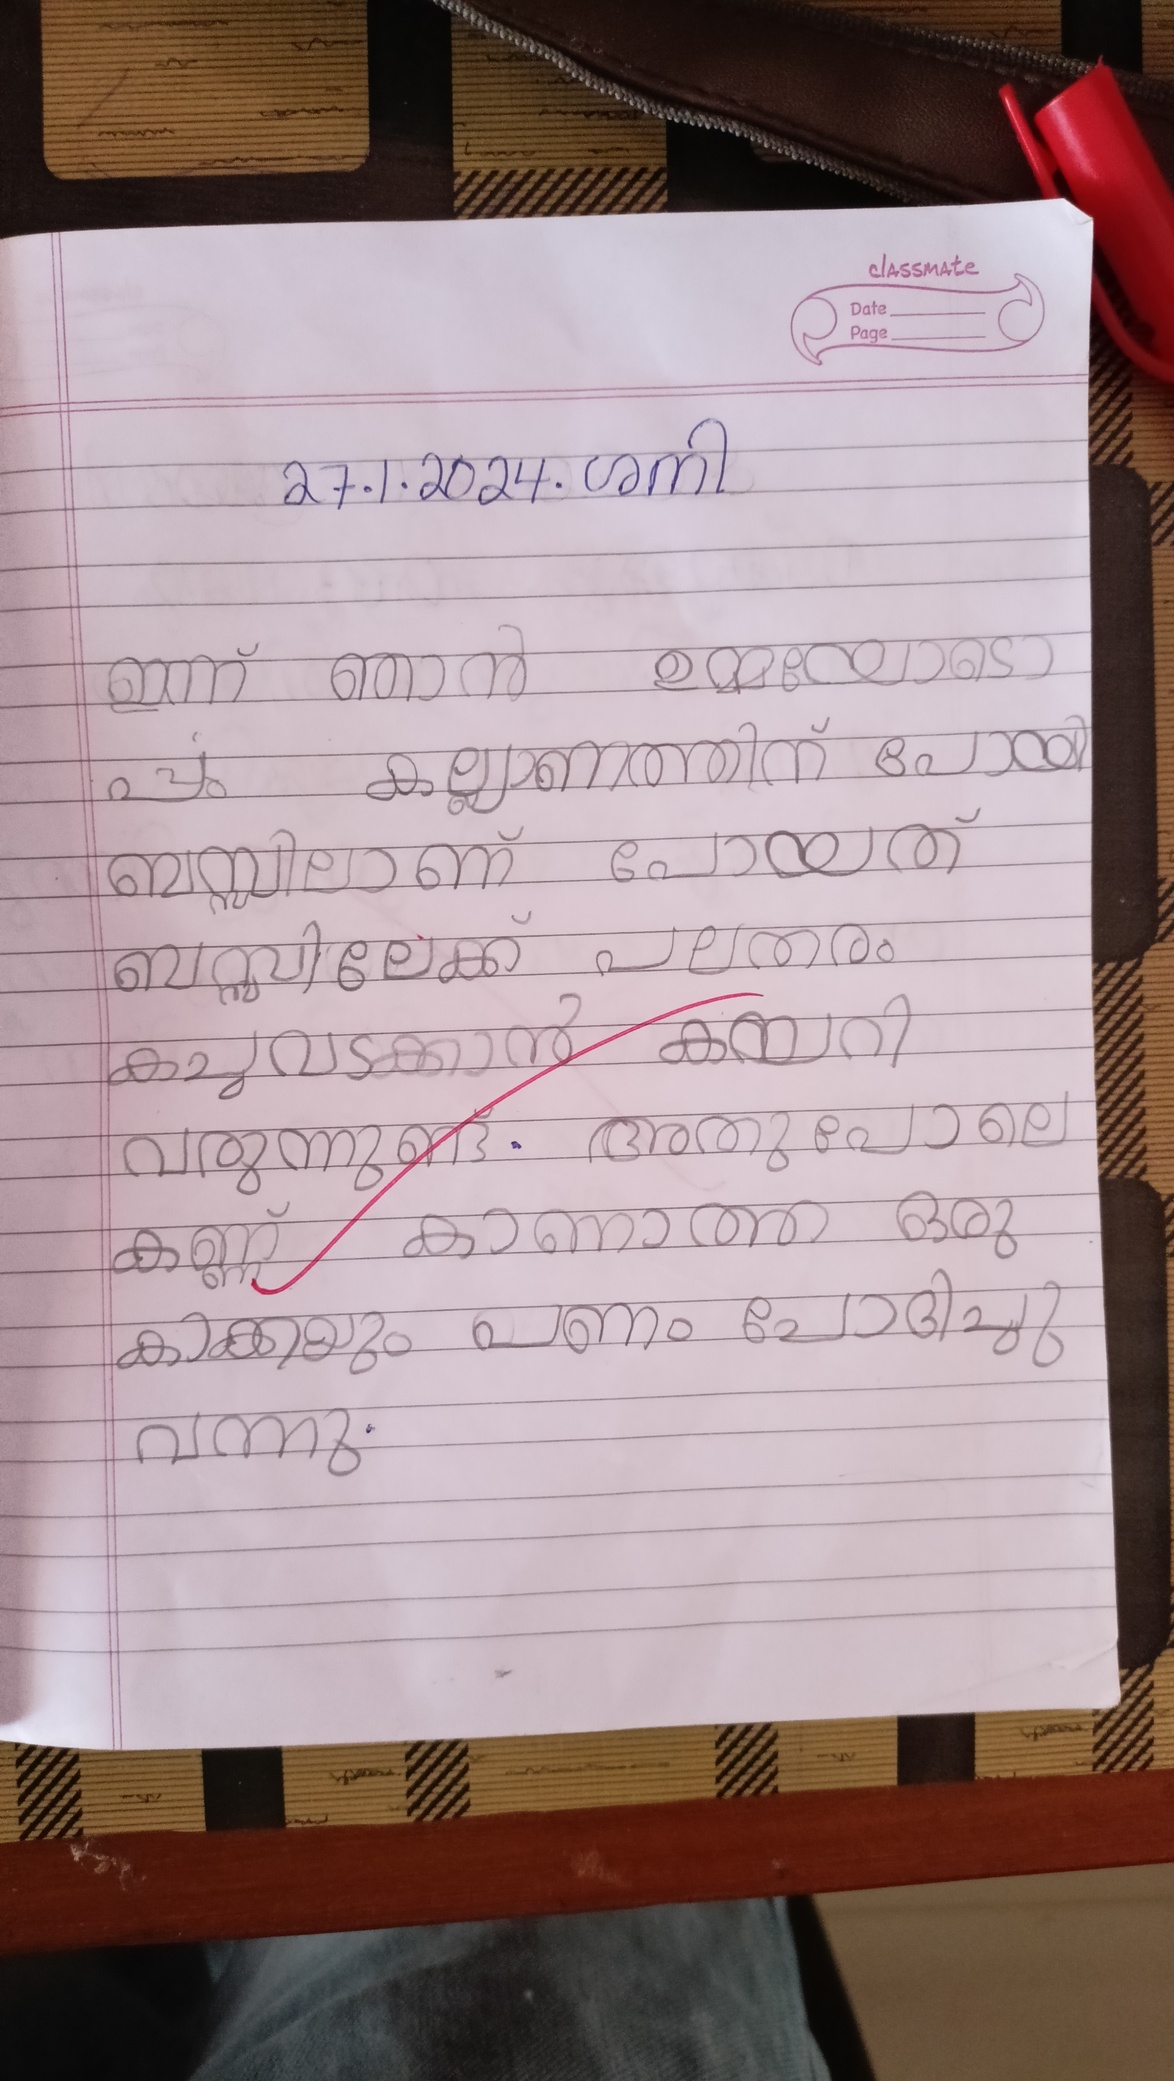 classmate
Date
Page
27.1.2024. ശനി
ഇന്ന് ഞാൻ
പ്പം കല്ല്യാണത്തിന് പോയി
ബസ്സിലാണ് പോയത്
ബസ്സിലേക്ക് പലതരം
കച്ചവടക്കാൻ കയറി
വരുന്നുണ്ട്. അതുപോലെ
കണ്ണ് കാണാത്ത ഒരു
കാക്കയും പണം പോദിച്ചു
വന്നു.